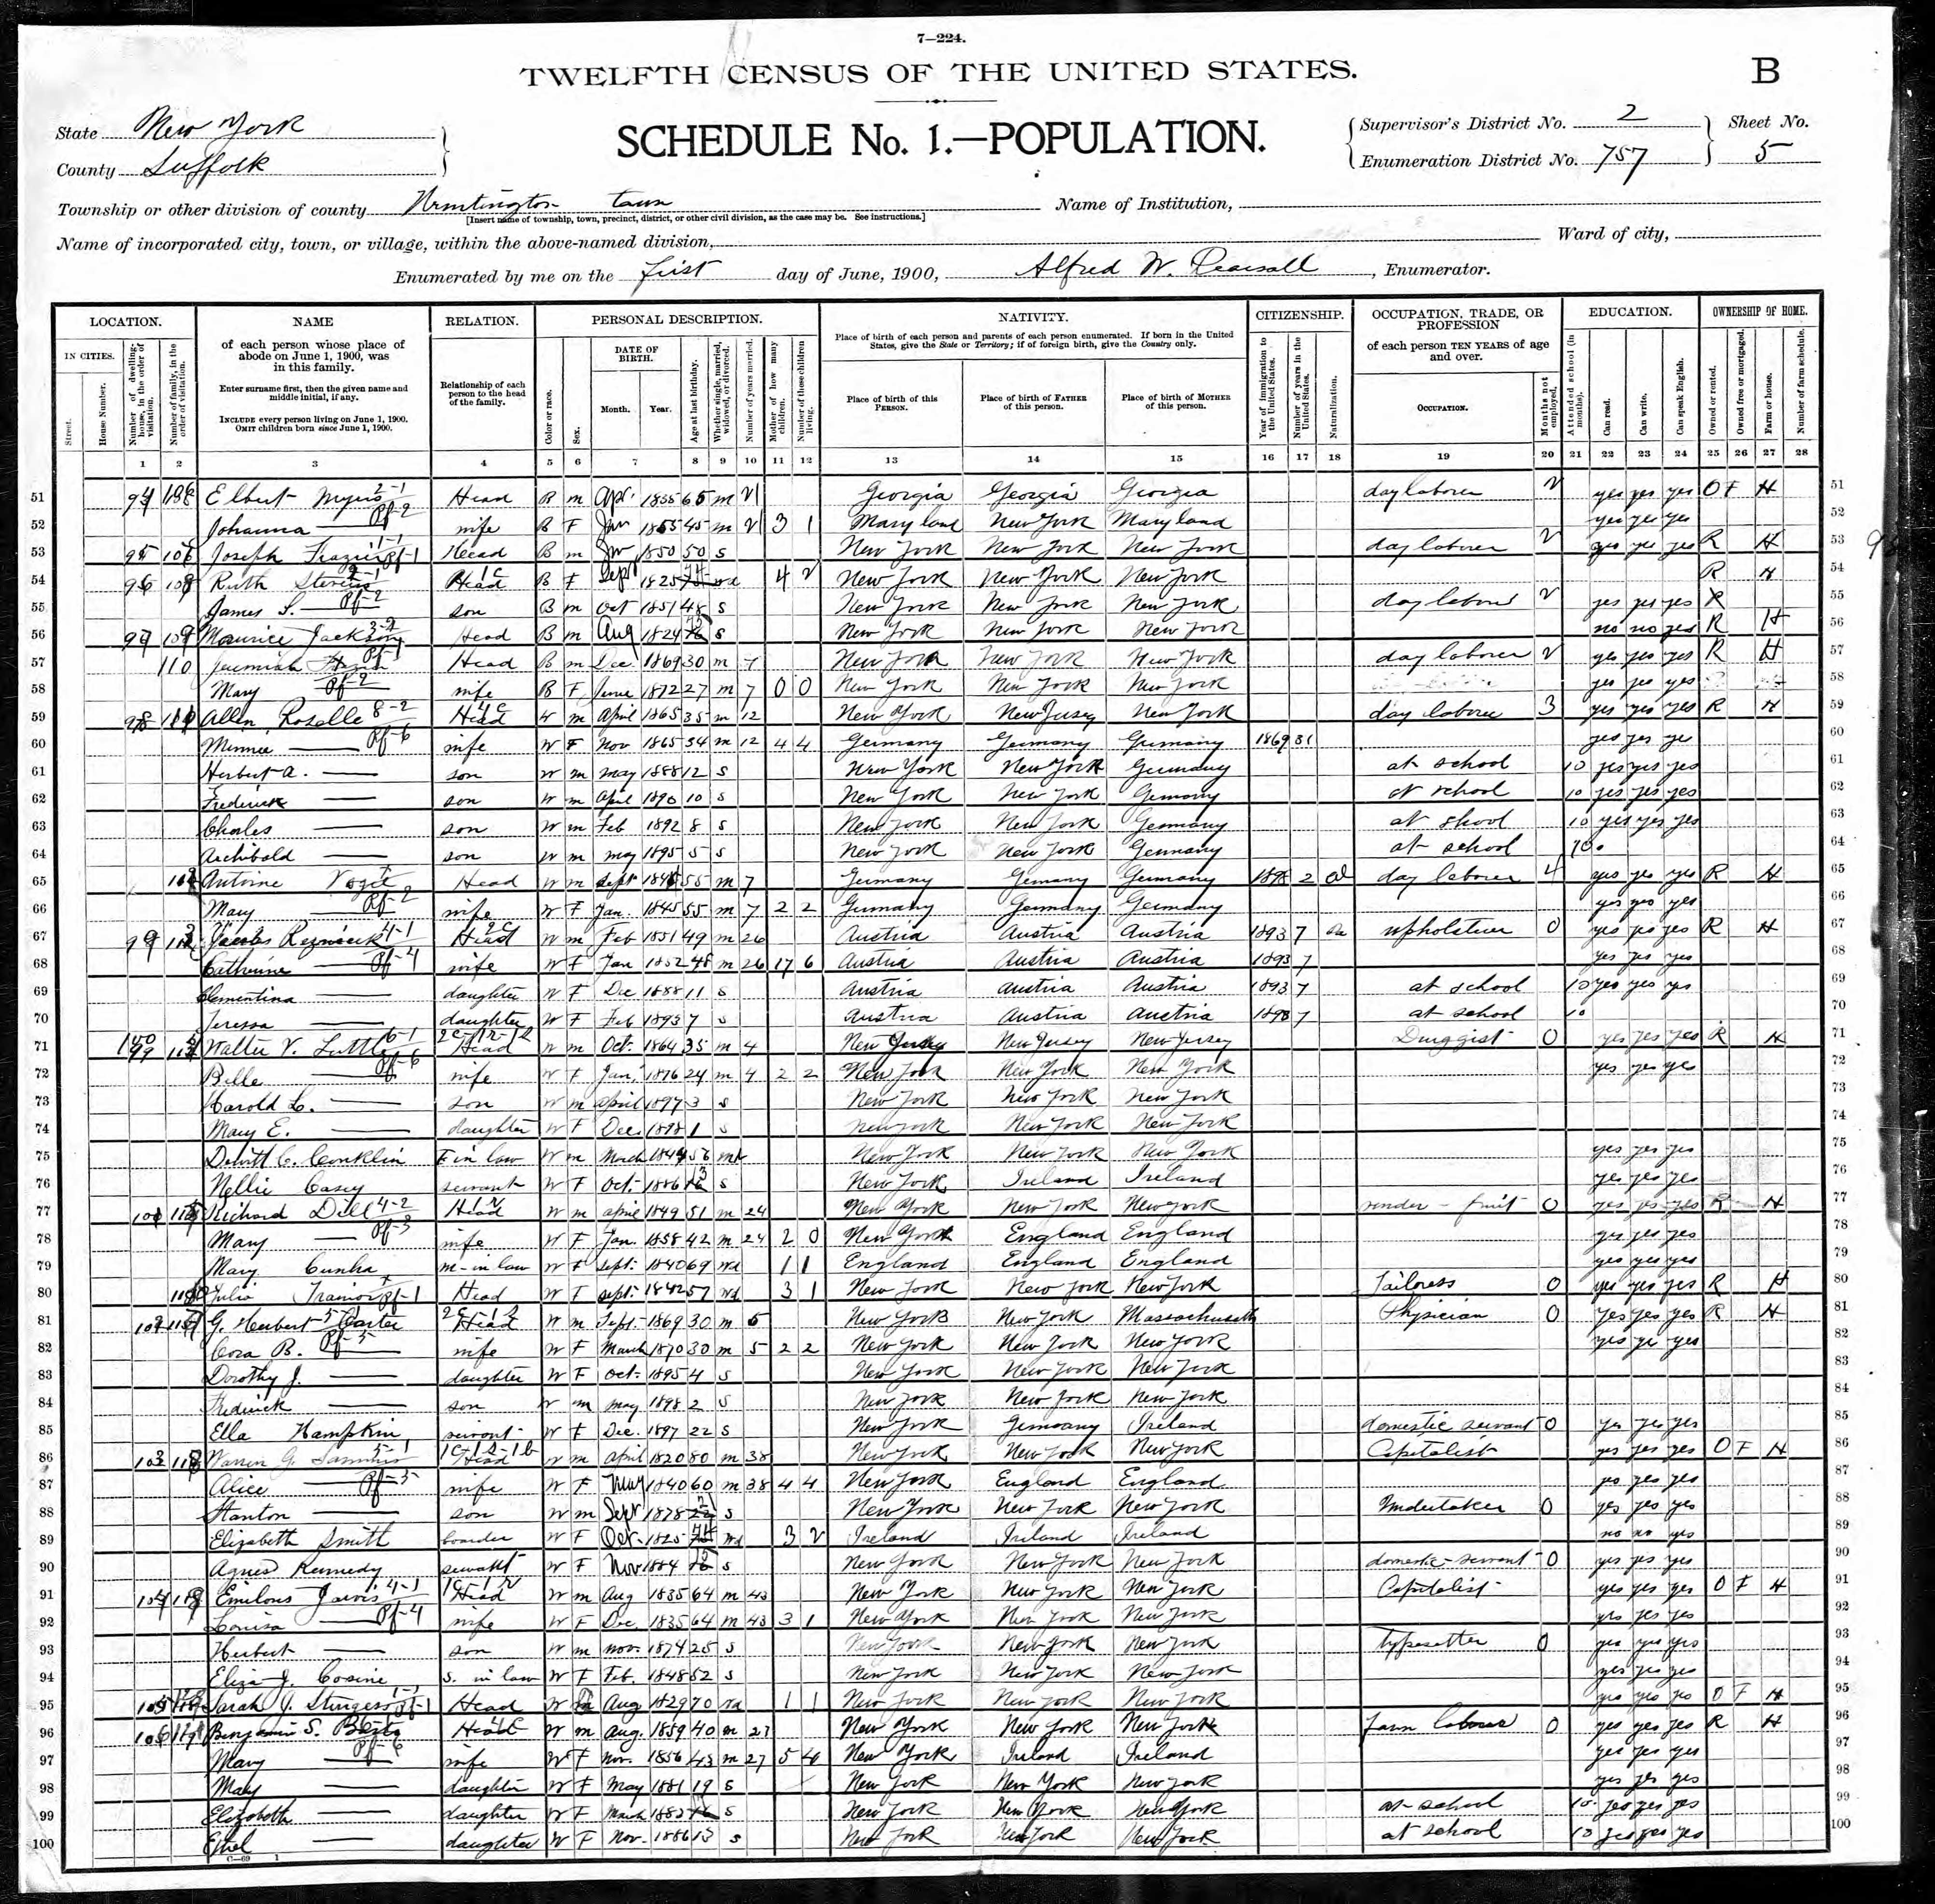 7—224.
TWELFTH CENSUS OF THE UNITED STATES.
B
State New York
County Suffolk
SCHEDULE No. 1.—POPULATION.
Supervisor's District No. 2
Enumeration District No. 757
Sheet No.
5
Township or other division of county Huntington town
[Insert name of township, town, precinct, district, or other civil division, as the case may be. See instructions.]
Name of Institution,
Name of incorporated city, town, or village, within the above-named division,
Ward of city,
Enumerated by me on the first day of June, 1900, Alfred W. Pearsall, Enumerator.
LOCATION. NAME RELATION. PERSONAL DESCRIPTION. NATIVITY. CITIZENSHIP. OCCUPATION, TRADE, OR PROFESSION EDUCATION. OWNERSHIP OF HOME.
IN CITIES.
Street.
House Number.
Number of dwelling-house, in the order of visitation.
Number of family, in the order of visitation.
of each person whose place of abode on June 1, 1900, was in this family.
Enter surname first, then the given name and middle initial, if any.
INCLUDE every person living on June 1, 1900.
OMIT children born since June 1, 1900.
Relationship of each person to the head of the family.
Color or race.
Sex.
DATE OF BIRTH.
Month. Year.
Age at last birthday.
Whether single, married, widowed, or divorced.
Number of years married.
Mother of how many children.
Number of those children living.
Place of birth of each person and parents of each person enumerated. If born in the United States, give the State or Territory; if of foreign birth, give the Country only.
Place of birth of this PERSON.
Place of birth of FATHER of this person.
Place of birth of MOTHER of this person.
Year of immigration to the United States.
Number of years in the United States.
Naturalization.
of each person TEN YEARS of age and over.
OCCUPATION.
Months not employed.
Attended school (in months).
Can read.
Can write.
Can speak English.
Owned or rented.
Owned free or mortgaged.
Farm or house.
Number of farm schedule.
1 2 3 4 5 6 7 8 9 10 11 12 13 14 15 16 17 18 19 20 21 22 23 24 25 26 27 28
51 Elbert Myers Head B m Apr. 1835 65 m Georgia Georgia Georgia day laborer yes yes yes O F H 51
52 Johanna wife B F 45 m 3 1 Maryland New York Maryland yes yes yes 52
53 95 Joseph Frazier Head B m 1850 50 s New York New York New York day laborer yes yes yes R H 53
54 96 Ruth Stevens Head B F Sept 1825 4 New York New York New York R H 54
55 James S. son B m Oct 1851 48 s New York New York New York day labor yes yes yes 55
56 97 109 Maurice Jackson Head B m Aug 1824 s New York New York New York no no yes R H 56
57 110 Jeremiah Head B m Dec 1869 30 m 7 New York New York New York day laborer yes yes yes R H 57
58 Mary wife B F June 1872 27 m 7 0 0 New York New York New York yes yes yes 58
59 98 Allen Roselle Head W m April 1865 35 m 12 New York New Jersey New York day laborer 3 yes yes yes R H 59
60 Minnie wife W F Nov 1865 34 m 12 4 4 Germany Germany Germany 1869 31 yes yes ye 60
61 Herbert A. son W m May 1888 12 s New York New York Germany at school 10 yes yes yes 61
62 Frederick son W m April 1890 10 s New York New York Germany at school 10 yes yes yes 62
63 Charles son W m Feb 1892 8 s New York New York Germany at school 10 yes yes yes 63
64 Archibald son W m May 1895 5 s New York New York Germany at school 10 64
65 Antoine Head W m Sept 55 m 7 Germany Germany Germany 1898 2 al day laborer 4 yes yes yes R H 65
66 Mary wife W F Jan. 1845 55 m 7 2 2 Germany Germany Germany yes yes yes 66
67 99 Reznicek Head W m Feb 1851 49 m 26 Austria Austria Austria 1893 7 upholsterer 0 yes yes yes R H 67
68 Catherine wife W F Jan 1852 48 m 26 17 6 Austria Austria Austria 1893 7 yes yes yes 68
69 Clementina daughter W F Dec 1888 11 s Austria Austria Austria 1893 7 at school 10 yes yes ys 69
70 Teressa daughter W F Feb 1893 7 s Austria Austria Austria 7 at school 10 70
71 100 Walter V. Head W m Oct. 1864 35 m 4 New Jersey New Jersey New Jersey Druggist 0 yes yes yes R H 71
72 Belle wife W F 1876 24 m 4 2 2 New York New York New York yes yes yes 72
73 Harold L. son W m April 1897 3 s New York New York New York 73
74 Mary E. daughter W F Dec. 1898 1 s New York New York New York 74
75 Dewitt C. Conklin F in law W m March 56 New York New York New York yes yes yes 75
76 Nellie Casey servant W F Oct. 1886 s New York Ireland Ireland yes yes yes 76
77 101 Richard Dell Head W m April 1849 51 m 24 New York New York New York vender - fruit 0 yes yes yes R H 77
78 Mary wife W F Jan. 1858 42 m 24 2 0 New York England England yes yes yes 78
79 Mary Cunha m-in law W F Sept. 69 Wd 1 1 England England England yes yes yes 79
80 Julia Trainor Head W F Sept. 1842 57 Wd 3 1 New York New York New York Tailoress 0 yes yes yes R H 80
81 102 G. Herbert Carter Head W m Sept. 1869 30 m 5 New York New York Massachusetts Physician 0 yes yes yes R H 81
82 Cora B. wife W F March 1870 30 m 5 2 2 New York New York New York yes ye yes 82
83 Dorothy J. daughter W F Oct. 1895 4 s New York New York New York 83
84 Fredrick son W m May 1898 2 s New York New York New York 84
85 Ella Hampkin servant W F Dec. 1897 22 s New York Germany Ireland domestic servant 0 yes yes yes 85
86 103 118 Warren G. Sammis Head W m April 1820 80 m 38 New York New York New York Capitalist yes yes yes O F H 86
87 Alice wife W F May 1840 60 m 38 4 4 New York England England yes yes yes 87
88 Stanton son W m Sept 1878 s New York New York New York Undertaker 0 yes yes yes 88
89 Elizabeth Smith boarder W F Oct. 1825 Wd 3 Ireland Ireland Ireland no no yes 89
90 Agnes Kennedy servant W F Nov 1884 s New York New York New York domestic servant 0 yes yes yes 90
91 104 119 Jarvis Head W m Aug 1835 64 m 43 New York New York New York Capitalist yes yes yes O F H 91
92 Louisa wife W F Dec. 1835 64 m 43 3 1 New York New York New York yes yes yes 92
93 Herbert son W m Nov. 1874 25 s New York New York New York Typesetter 0 yes yes yes 93
94 Eliza J. Cosine s. in law W F Feb. 1848 52 s New York New York New York yes yes yes 94
95 105 Sarah J. Sturgess Head W Aug 1829 70 Wd 1 1 New York New York New York yes yes yes O F H 95
96 106 Benjamin S. Head W m Aug. 1859 40 m New York New York New York farm laborer 0 yes yes yes R H 96
97 Mary wife W F Nov. 1856 43 m 27 5 4 New York Ireland Ireland yes yes yes 97
98 May daughter W F May 1881 19 s New York New York New York yes yes yes 98
99 Elizabeth daughter W F March 1883 s New York New York New York at school 10 yes yes yes 99
100 Ethel daughter W F Nov. 1886 13 s New York New York New York at school 10 yes yes yes 100
C—69 1